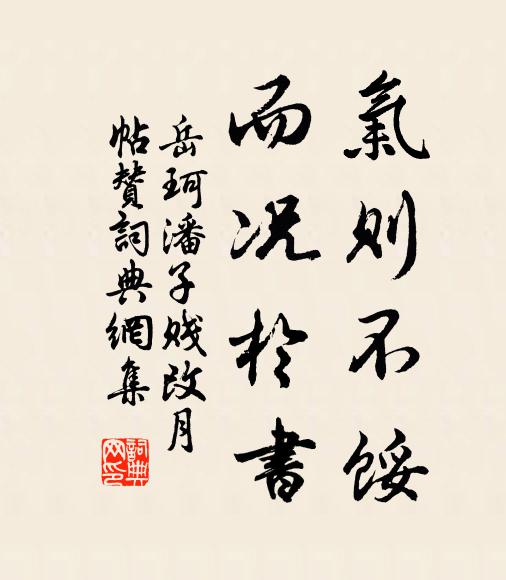 氣則不餒
而況於書
岳珂潘子賤改月
帖贊詞典網集
詞典網印